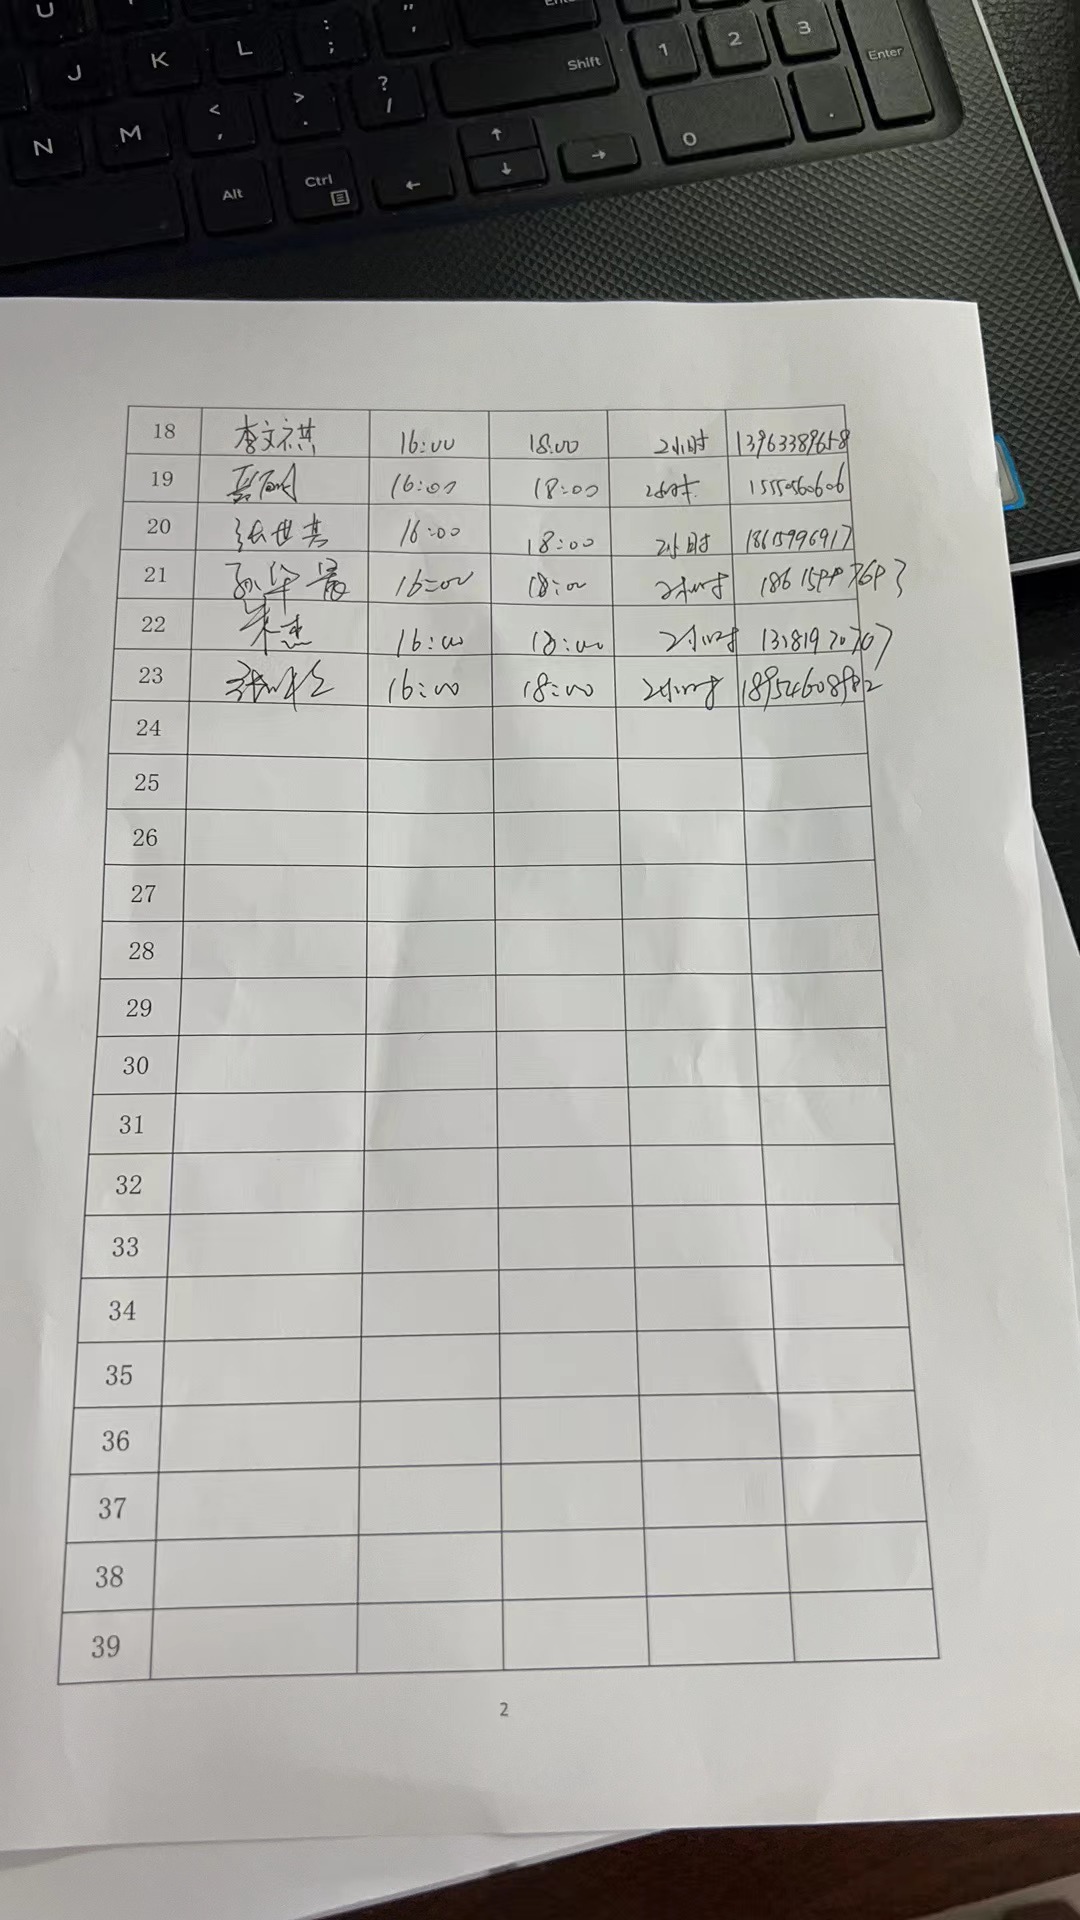 U
J K L : ; " '
Shift 1 2 3 Enter
N M < , > . ? /
↑ 0 .
Alt Ctrl ← ↓ →
18 李文祺 16:00 18:00 2小时 13963389658
19 16:00 18:00 2小时 1555060606
20 张世英 16:00 18:00 2小时 18615996917
21 16:00 18:00 2小时
22 朱杰 16:00 18:00 2小时
23 16:00 18:00 2小时 18954608982
24
25
26
27
28
29
30
31
32
33
34
35
36
37
38
39
2